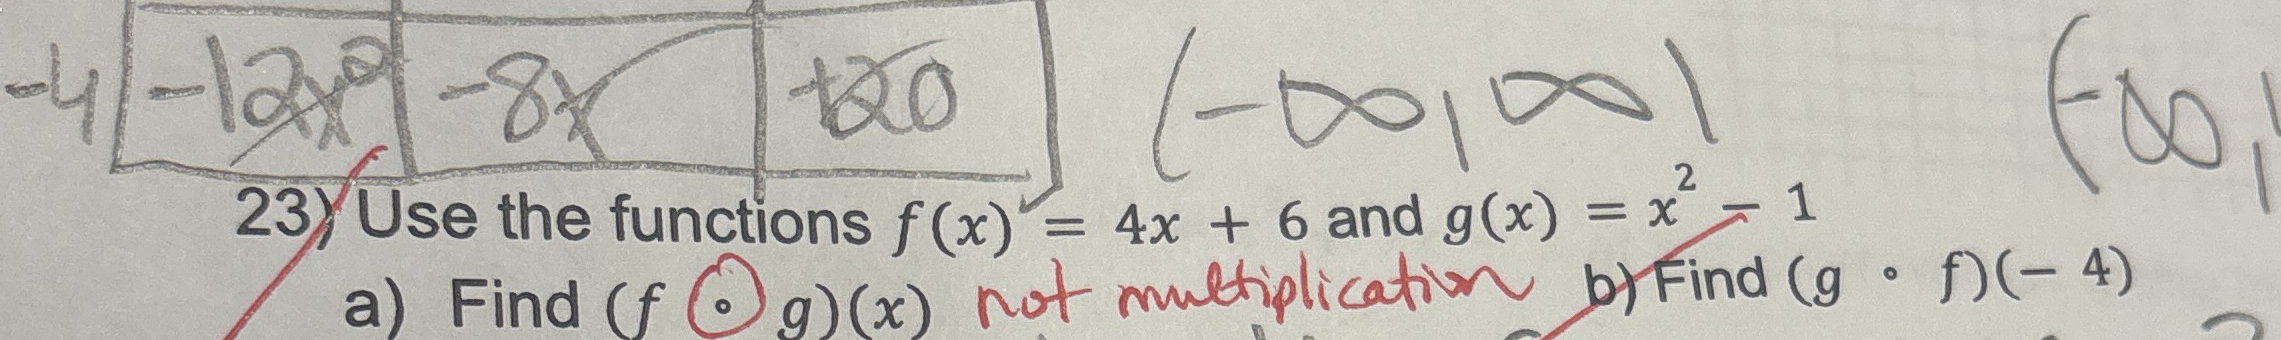 -4 -12x² -8x +20 (-∞, ∞) (-∞,
23) Use the functions f(x) = 4x + 6 and g(x) = x² - 1
a) Find (f ∘ g)(x) not multiplication b) Find (g ∘ f)(- 4)